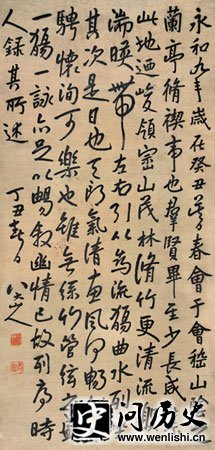 永和九年歲在癸丑暮春會于會稽山陰
蘭亭脩禊事也羣賢畢至少長咸
此地迺峻領崇山茂林脩竹更清流
湍暎帶左右引以為流觴曲水列
其次是日也天朗氣清惠風和暢
騁懷洵可樂也雖無絲竹管弦之
一觴一詠亦足以暢敘幽情已故列序時
人錄其所述
丁丑春日
八大山人
史问历史
www.wenlishi.cn